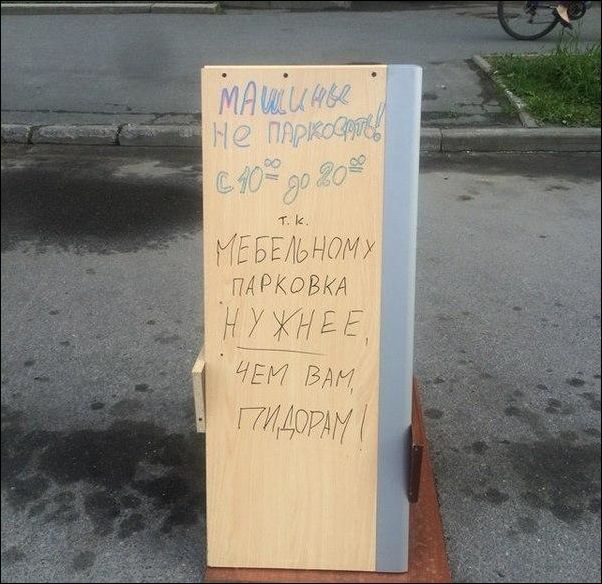 МАШИНЫ
НЕ ПАРКОВАТЬ!
С 10°° до 20°°
т.к.
МЕБЕЛЬНОМУ
ПАРКОВКА
НУЖНЕЕ,
ЧЕМ ВАМ,
ПИДОРАМ!